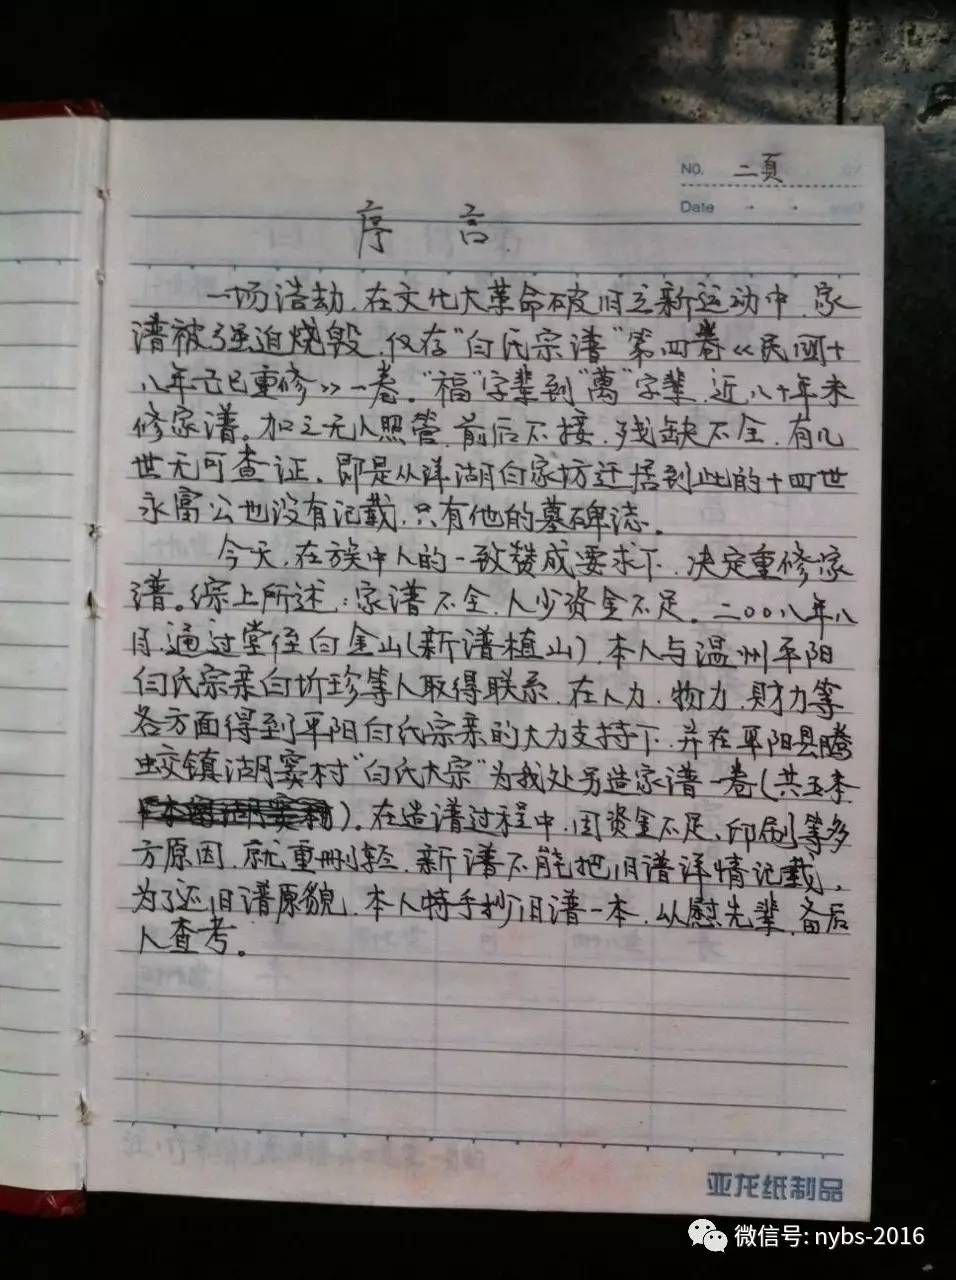 NO. 二頁
Date
序 言
一场浩劫,在文化大革命破旧立新运动中,家
谱被强迫烧毁,仅存"白氏宗谱"第四卷《民国十
八年己巳重修》一卷。"福"字辈到"萬"字辈,近八十年未
修家谱。加之无人照管,前后不接,残缺不全,有几
世无可查证,即是从洋湖白家坊迁居到此的十四世
永富公也没有记载,只有他的墓碑志。
今天,在族中人的一致赞成要求下,决定重修家
谱。综上所述:家谱不全,人少资金不足。二00八年八
月,通过堂侄白金山(新谱植山),本人与温州平阳
白氏宗亲白圻珍等人取得联系,在人力,物力,财力等
各方面得到平阳白氏宗亲的大力支持下,并在平阳县腾
蛟镇湖窦村"白氏大宗"为我处另造家谱一卷(共五本
)。在造谱过程中,因资金不足,印刷等多
方原因,就重删轻,新谱不能把旧谱详情记载,
为了还旧谱原貌,本人特手抄旧谱一本,以慰先辈,备后
人查考。
亚龙纸制品
微信号: nybs-2016